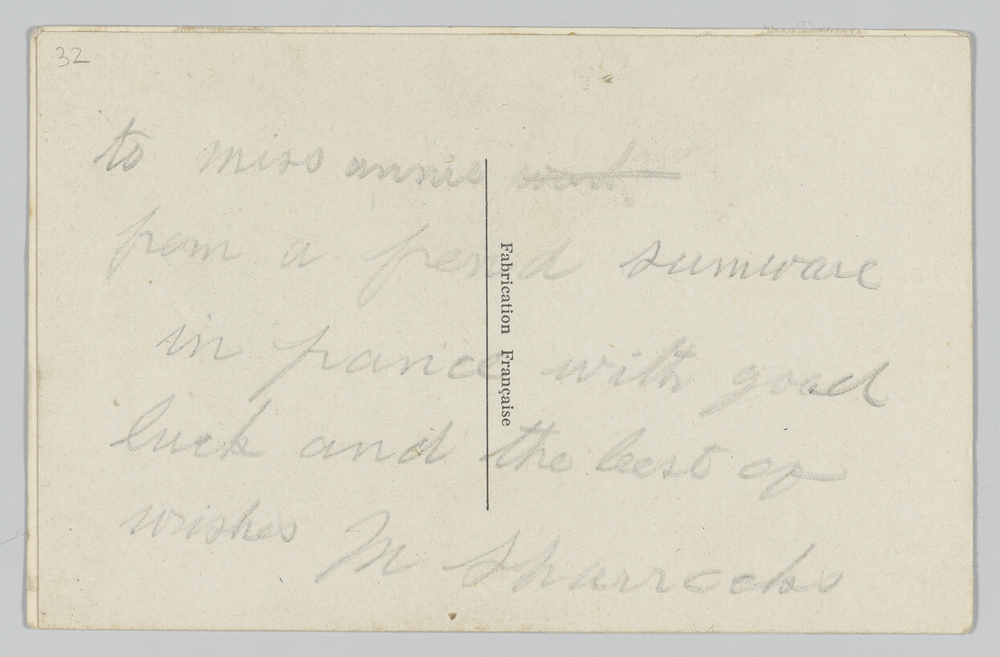 32
to miss annie
from a frend sumware
in france with good
luck and the best of
wishes M Sharrocks
Fabrication Française